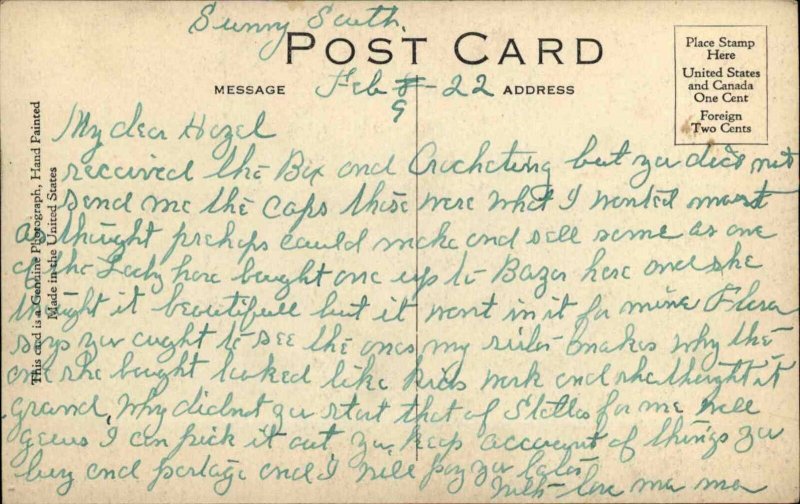 Sunny South.
POST CARD
Place Stamp
Here
United States
and Canada
One Cent
Foreign
Two Cents
MESSAGE
Feb 9-22
ADDRESS
This card is a Genuine Photograph, Hand Painted
Made in the United States
My dear Hazel
received the Box and Crocheting but you did not
send me the caps those were what I wanted most
as thought prehaps could make and sell some as one
of the Lady here bought one up to Bazar here and she
thought it beautifull but it wont in it for mine Flora
says you ought to see the ones my sister makes why the
one she bought looked like kids work and she thought it
grand, Why didnt you start that of for me well
guess I can pick it out you keep account of things you
buy and postage and I will pay you later
With love ma ma